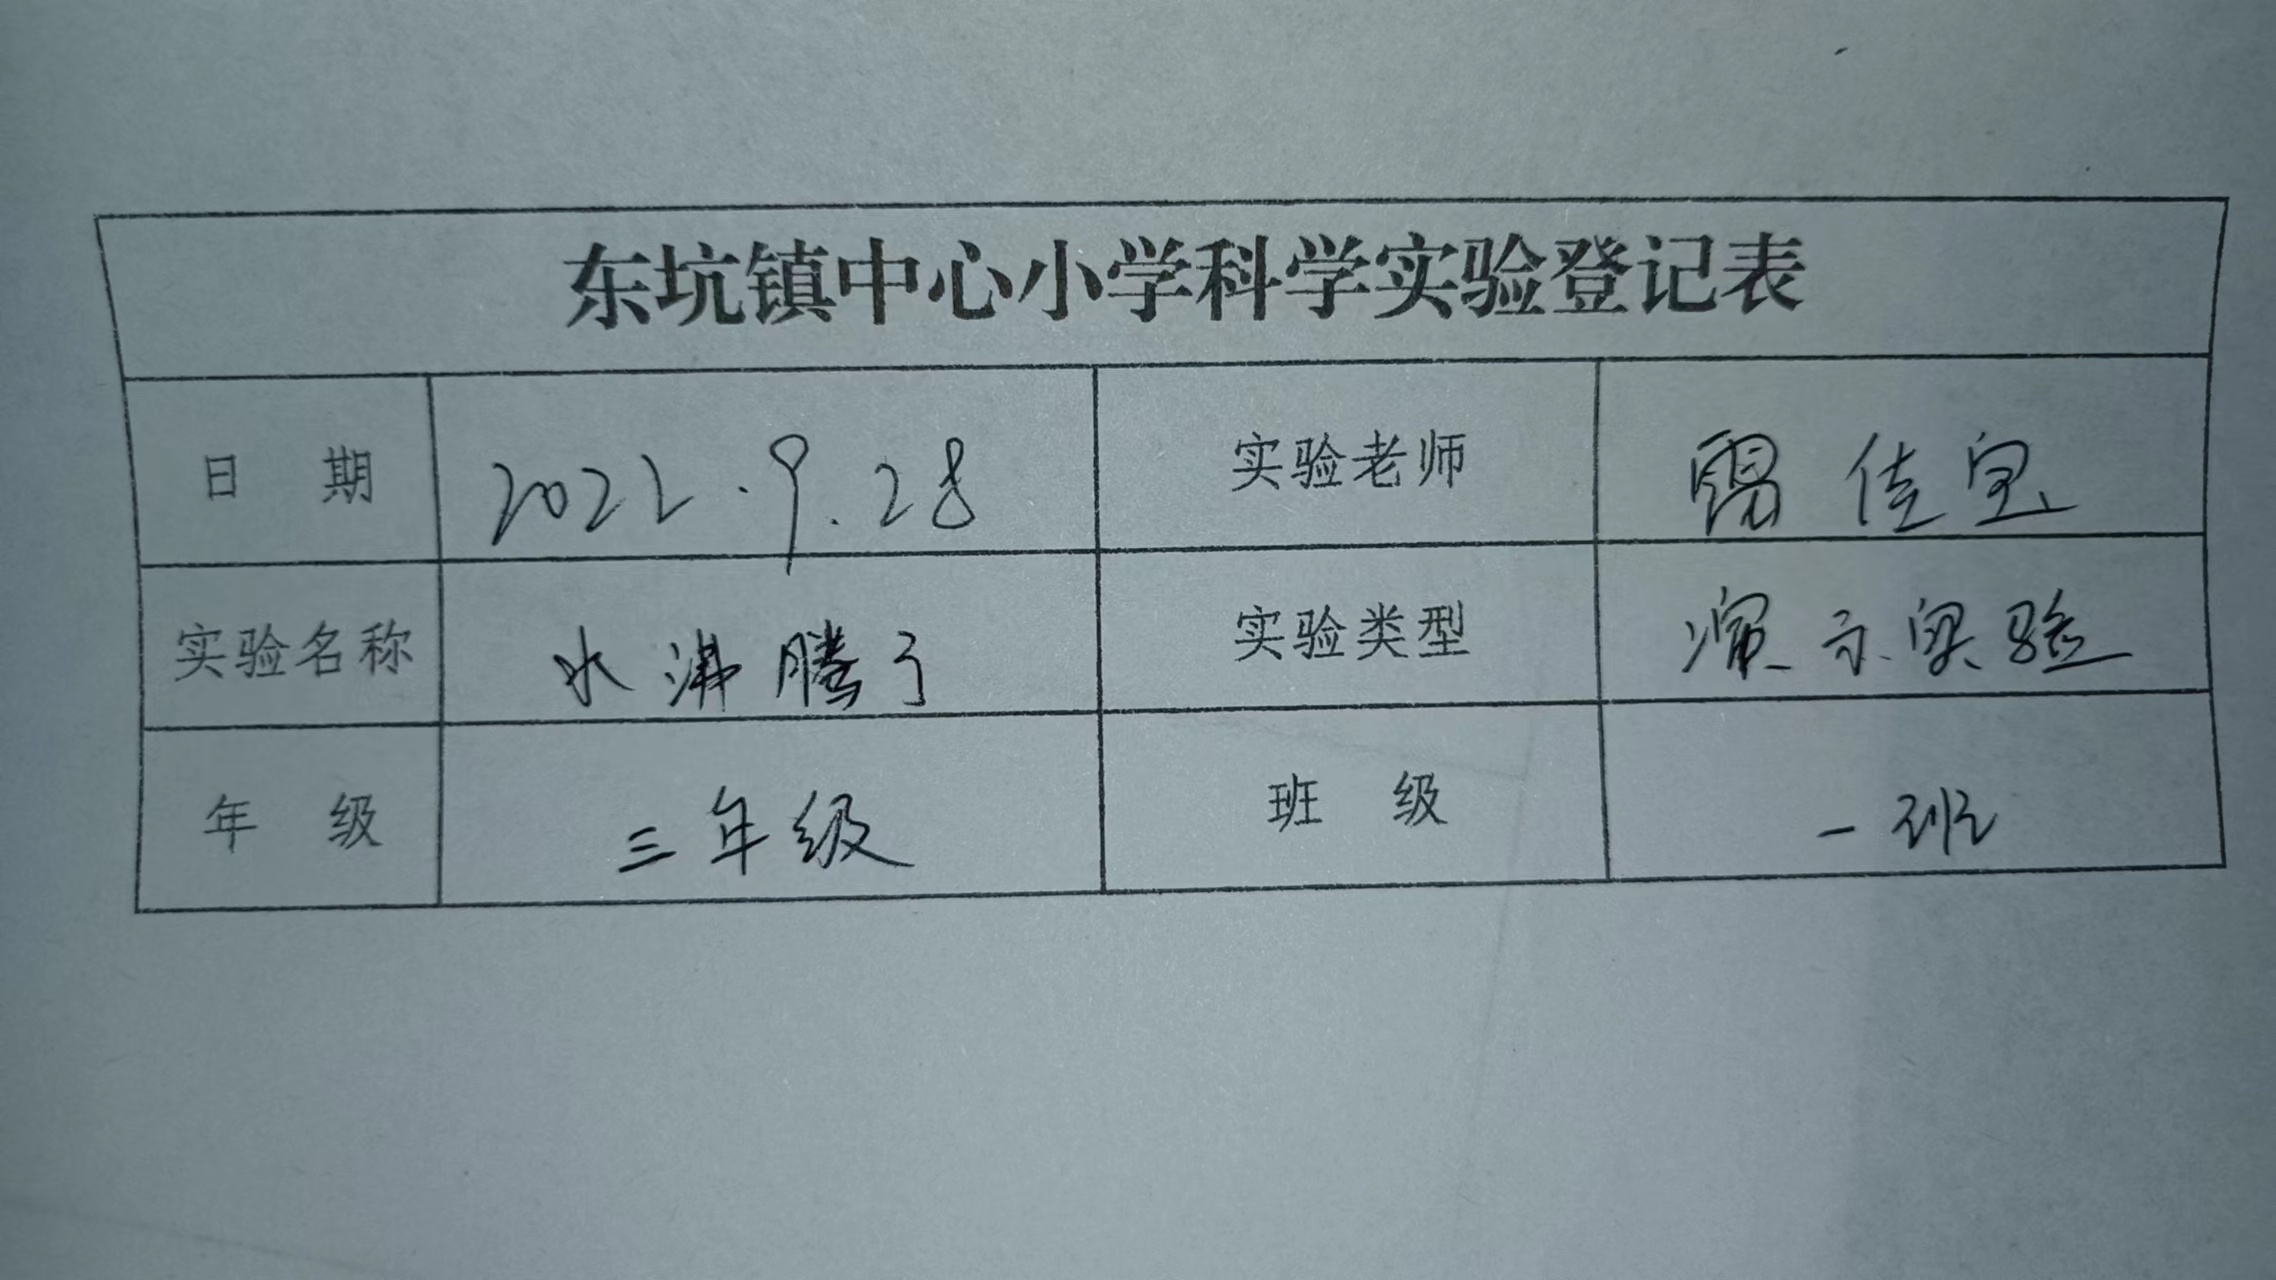 东坑镇中心小学科学实验登记表
日 期 2022.9.28 实验老师 佳宝
实验名称 水沸腾了 实验类型 演示实验
年 级 三年级 班 级 一班